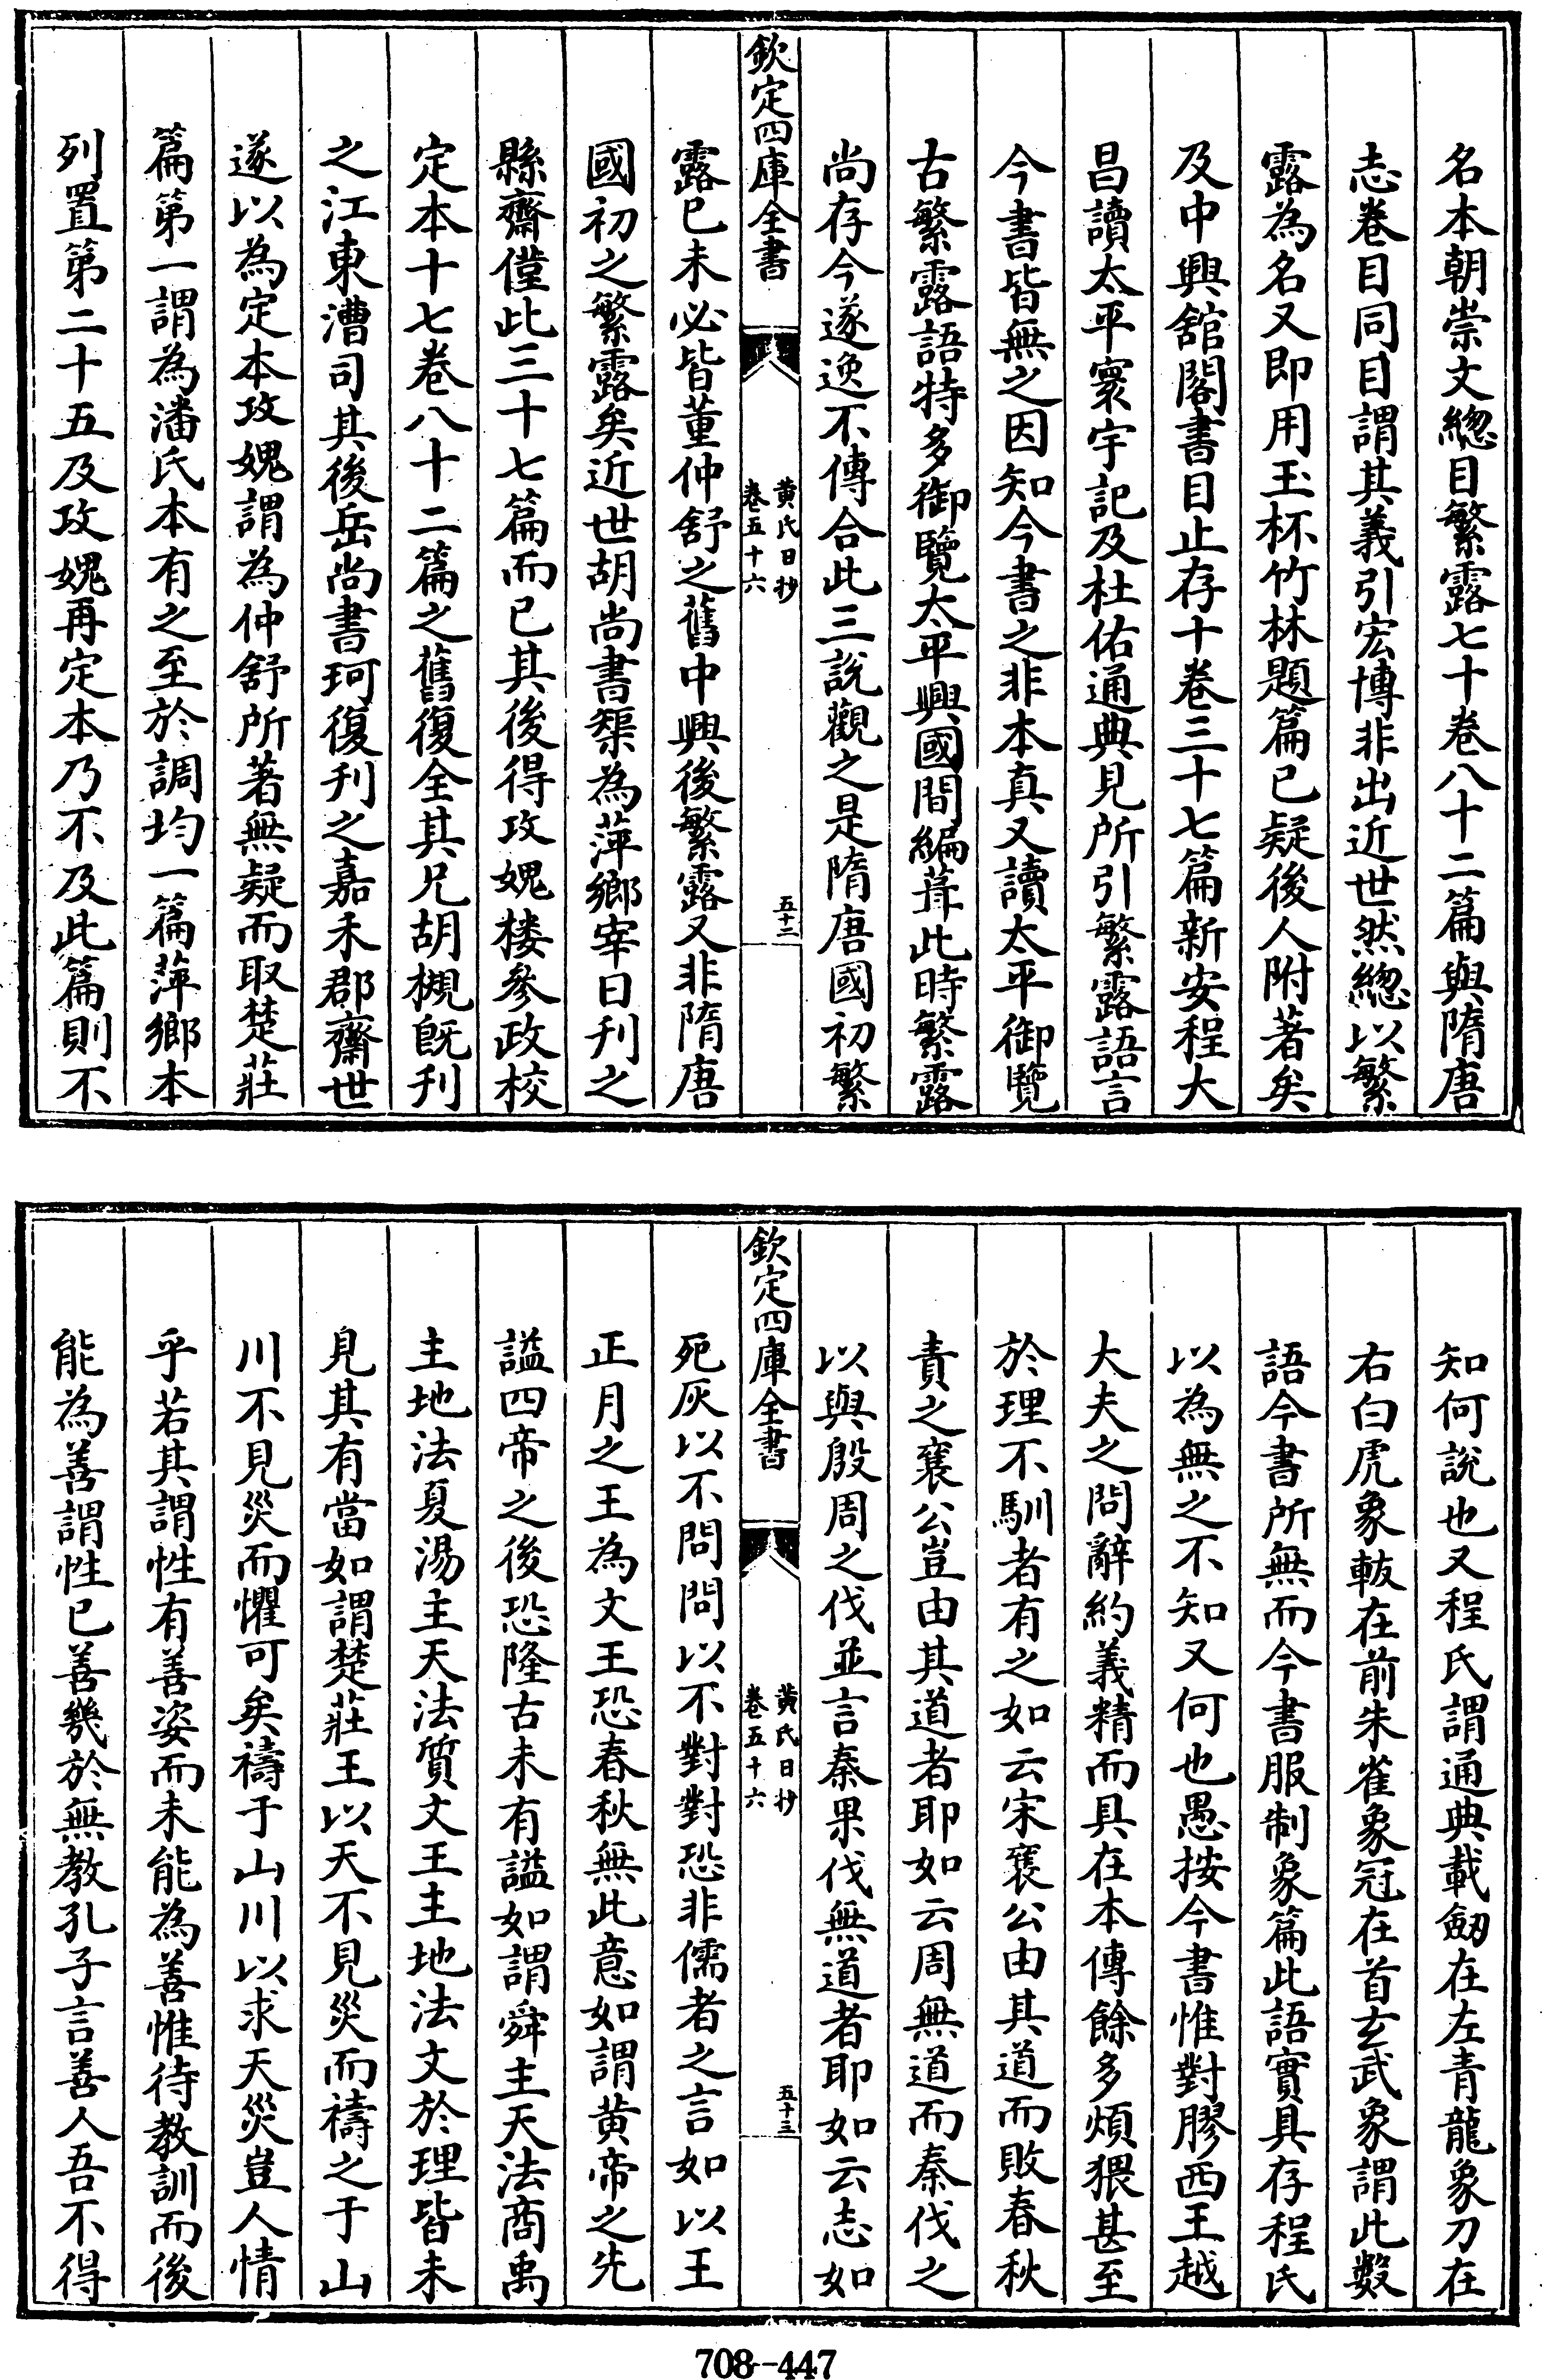 名本朝崇文總目繁露七十卷八十二篇與隋唐
志卷目同目謂其義引宏博非出近世然總以繁
露為名又即用玉杯竹林題篇已疑後人附著矣
及中興舘閣書目止存十卷三十七篇新安程大
昌讀太平寰宇記及杜佑通典見所引繁露語言
今書皆無之因知今書之非本真又讀太平御覽
古繁露語特多御覽太平興國間編葺此時繁露
尚存今遂逸不傳合此三說觀之是隋唐國初繁
欽定四庫全書
黄氏日抄
卷五十六
五十二
露已未必皆董仲舒之舊中興後繁露又非隋唐
國初之繁露矣近世胡尚書榘為萍鄉宰日刋之
縣齋僅此三十七篇而已其後得攻媿樓參政校
定本十七卷八十二篇之舊復全其兄胡槻旣刋
之江東漕司其後岳尚書珂復刋之嘉禾郡齋世
遂以為定本攻媿謂為仲舒所著無疑而取楚莊
篇第一謂為潘氏本有之至於調均一篇萍鄉本
列置第二十五及攻媿再定本乃不及此篇則不
知何說也又程氏謂通典載劒在左青龍象刀在
右白虎象韍在前朱雀象冠在首玄武象謂此數
語今書所無而今書服制象篇此語實具存程氏
以為無之不知又何也愚按今書惟對膠西王越
大夫之問辭約義精而具在本傳餘多煩猥甚至
於理不馴者有之如云宋襄公由其道而敗春秋
責之襄公豈由其道者耶如云周無道而秦伐之
以與殷周之伐並言秦果伐無道者耶如云志如
欽定四庫全書
黄氏日抄
卷五十六
五十三
死灰以不問問以不對對恐非儒者之言如以王
正月之王為文王恐春秋無此意如謂黄帝之先
謚四帝之後恐隆古未有謚如謂舜主天法商禹
主地法夏湯主天法質文王主地法文於理皆未
見其有當如謂楚莊王以天不見災而禱之于山
川不見災而懼可矣禱于山川以求天災豈人情
乎若其謂性有善姿而未能為善惟待教訓而後
能為善謂性已善幾於無教孔子言善人吾不得
708-447